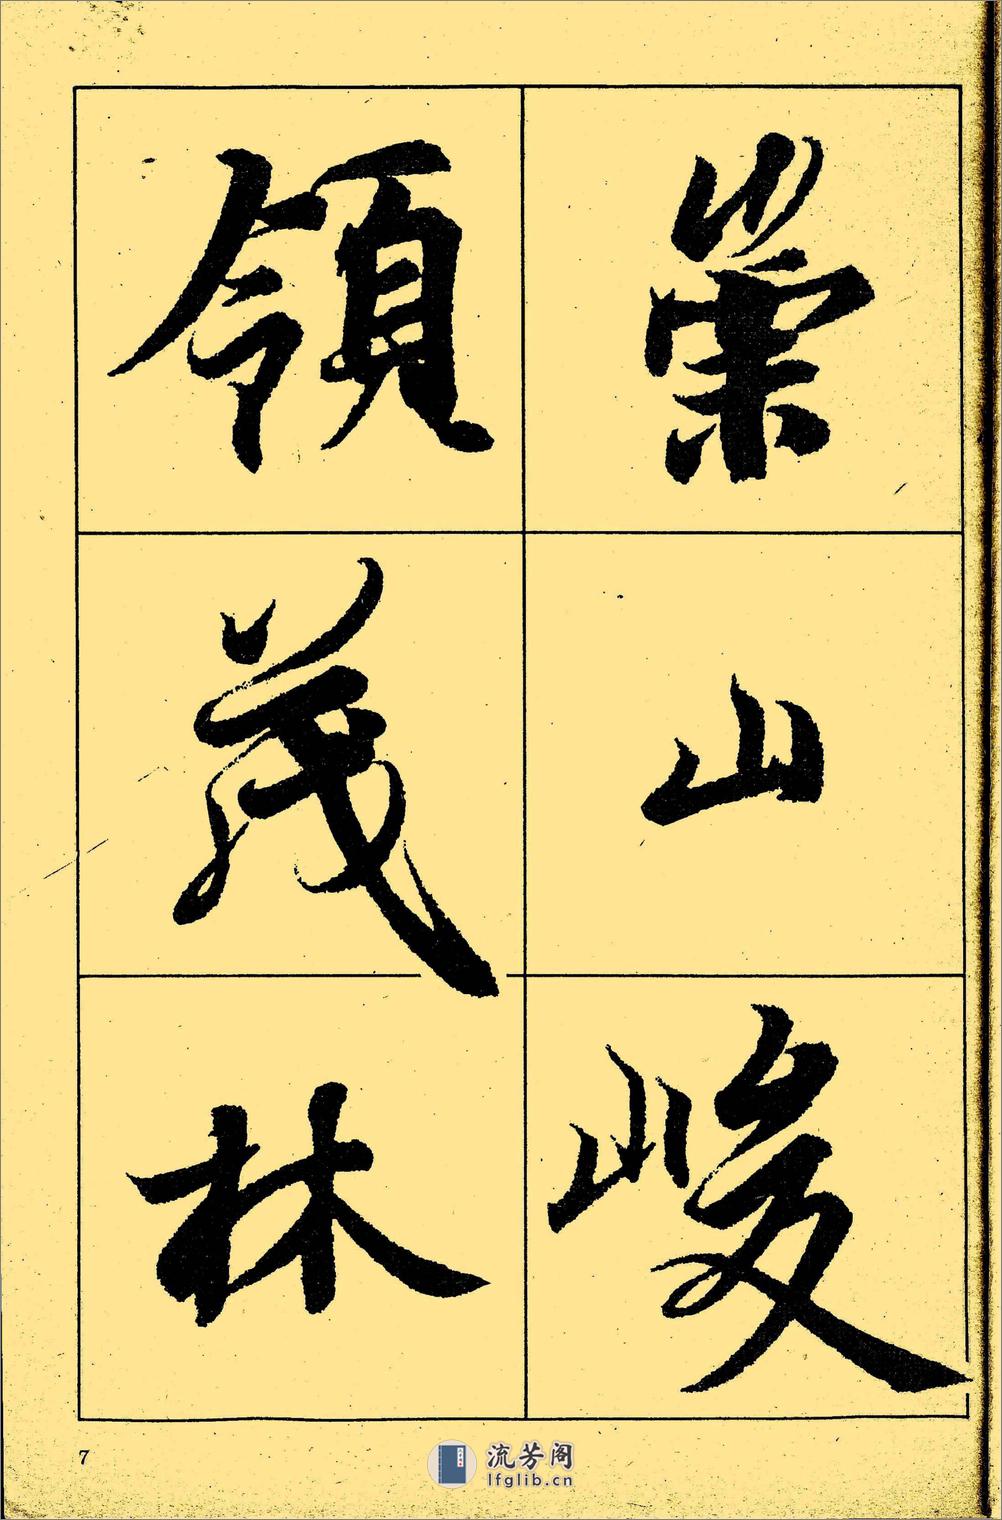 崇山峻
領茂林
7
流芳阁
lfglib.cn